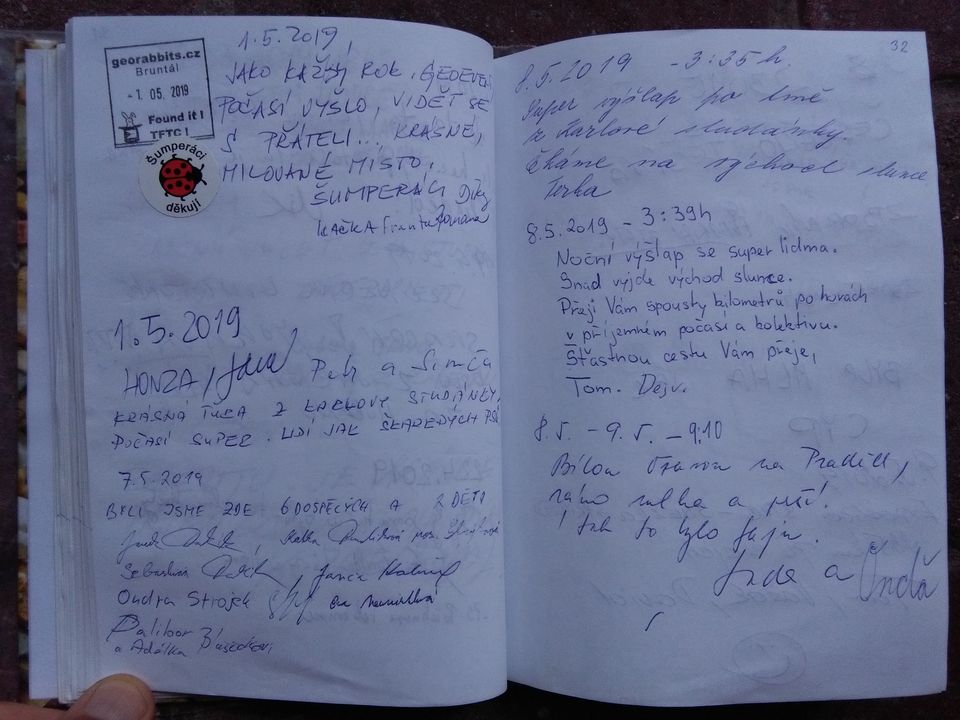 georabbits.cz
Bruntál
- 1. 05. 2019
Found it !
TFTC !
Šumperáci
děkují
1.5.2019,
JAKO KAŽDÝ ROK,
POČASÍ VYŠLO, VIDĚT SE
S PŘÁTELI... KRÁSNÉ,
MILOVANÉ MÍSTO,
ŠUMPERÁCI Díky
KAČKA Franta Romana
1.5.2019
HONZA, Petr a Simča
KRÁSNÁ TÚRA Z KARLOVY STUDÁNKY,
POČASÍ SUPER. LIDÍ JAK ŠKAREDÝCH PSŮ
7.5.2019
BYLI JSME ZDE 6 DOSPĚLÝCH A 2 DĚTI
Sebastian
Ondra Strojek
Dalibor
a Adélka
32
8.5.2019 - 3:35 h.
Super výšlap po tmě
z Karlové studánky.
Čekáme na východ slunce
8.5.2019 - 3:39h
Noční výšlap se super lidma.
Snad vyjde východ slunce.
Přeji Vám spousty kilometrů po horách
v příjemném počasí a kolektivu.
Šťastnou cestu Vám přeje,
Tom. Dejv.
8.5. - 9.5. - 9:10
Bílou na Praděd,
ráno mlha a prší.
I tak to bylo fajn.
Jade a Ondra